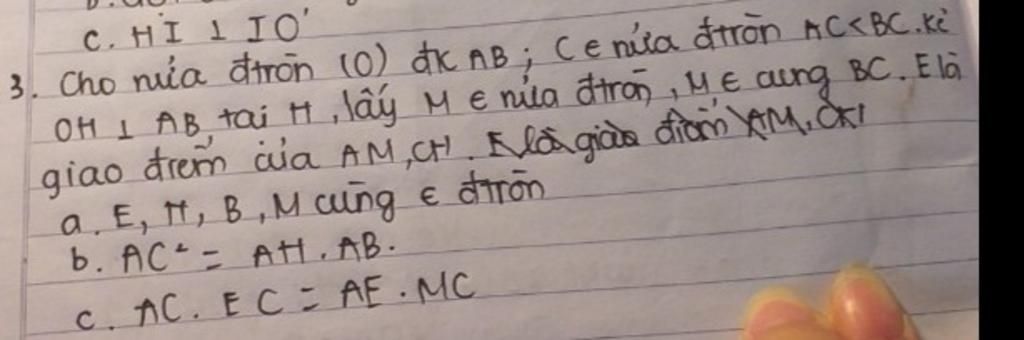 c. HI ⊥ IO'
3. Cho nửa đtròn (O) đk AB; C ∈ nửa đtròn AC < BC. Kẻ
OH ⊥ AB, tại H, lấy M ∈ nửa đtròn, M ∈ cung BC. E là
giao điểm của AM, CH.
a. E, H, B, M cùng ∈ đtròn
b. AC² = AH. AB.
c. AC. EC = AE. MC